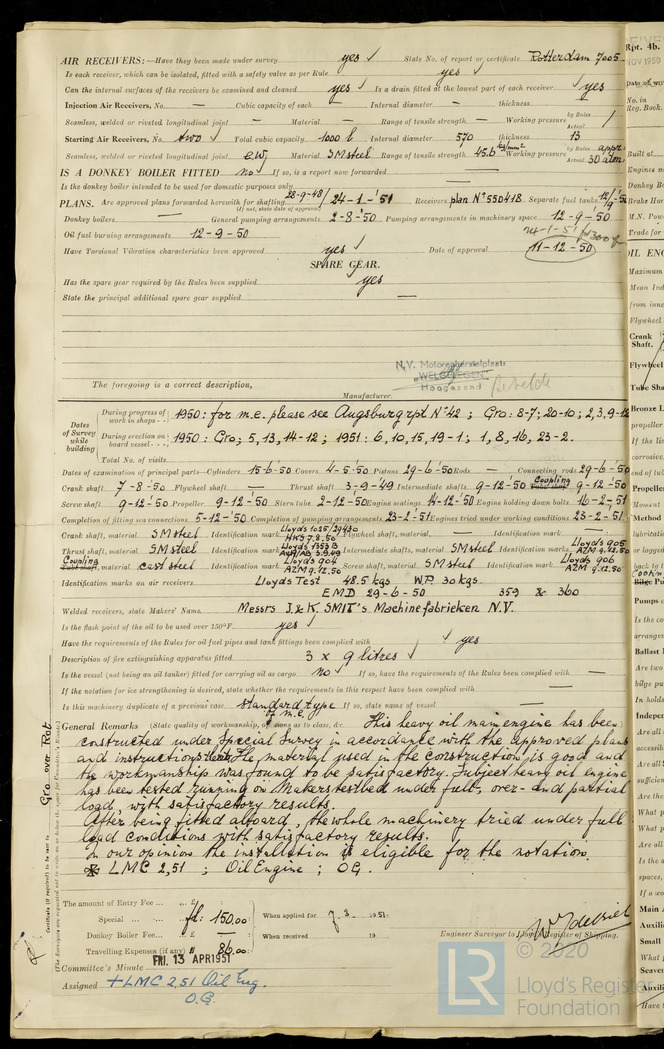 AIR RECEIVERS:—Have they been made under survey yes ✓ State No. of report or certificate Rotterdam 7005
Is each receiver, which can be isolated, fitted with a safety valve as per Rule yes ✓
Can the internal surfaces of the receivers be examined and cleaned yes ✓ Is a drain fitted at the lowest part of each receiver ✓ yes
Injection Air Receivers, No. — Cubic capacity of each — Internal diameter — thickness
Seamless, welded or riveted longitudinal joint — Material — Range of tensile strength — Working pressure by Rules Actual
Starting Air Receivers, No. two Total cubic capacity 1000 l Internal diameter 570 thickness 13
Seamless, welded or riveted longitudinal joint e.w. Material SM steel Range of tensile strength 45.6 kg/mm² Working pressure by Rules appr. Actual 30 atm.
IS A DONKEY BOILER FITTED no ✓ If so, is a report now forwarded —
Is the donkey boiler intended to be used for domestic purposes only
PLANS. Are approved plans forwarded herewith for shafting 28-9-48 / 24-1-'51 Receivers plan No 550418. Separate fuel tanks
(If not, state date of approval)
Donkey boilers — General pumping arrangements 2-8-'50 Pumping arrangements in machinery space 12-9-50
Oil fuel burning arrangements 12-9-50 24-1-51
Have Torsional Vibration characteristics been approved yes ✓ Date of approval 11-12-50
SPARE GEAR.
Has the spare gear required by the Rules been supplied yes
State the principal additional spare gear supplied —
N.V. Motorenherstelplaats
"WELGELEGEN"
Hoogezand
The foregoing is a correct description,
Manufacturer.
Dates of Survey while building
During progress of work in shops - - 1950: for m.e. please see Augsburg rpt No 42; Gro: 8-7; 20-10; 2,3,9-12
During erection on board vessel - - - 1950: Gro; 5, 13, 14-12; 1951: 6, 10, 15, 19-1; 1, 8, 16, 23-2.
Total No. of visits
Dates of examination of principal parts—Cylinders 15-6-50 Covers 4-5-50 Pistons 29-6-50 Rods — Connecting rods 29-6-50
Crank shaft 7-8-50 Flywheel shaft — Thrust shaft 3-9-49 Intermediate shafts 9-12-50 Coupling 9-12-50
Screw shaft 9-12-50 Propeller 9-12-50 Stern tube 2-12-50 Engine seatings 14-12-50 Engine holding down bolts 16-2-51
Completion of fitting sea connections 5-12-'50 Completion of pumping arrangements 23-2-'51 Engines tried under working conditions 23-2-'51
Crank shaft, material SM steel Identification mark HNS 7.8.50 Flywheel shaft, material, — Identification mark —
Thrust shaft, material SM steel Identification mark Intermediate shafts, material SM steel Identification marks Lloyds 905 AZM 9.12.50
Coupling, material cast steel Identification mark Lloyds 904 AZM 9.12.50 Screw shaft, material SM steel Identification mark Lloyds 906 AZM 9.12.50
Identification marks on air receivers Lloyds Test 48.5 kgs W.P. 30 kgs.
E.M.D 29-6-50 359 & 360
Welded receivers, state Makers' Name Messrs J. & K. SMIT's Machinefabrieken N.V.
Is the flash point of the oil to be used over 150°F. yes ✓
Have the requirements of the Rules for oil fuel pipes and tank fittings been complied with ✓ yes
Description of fire extinguishing apparatus fitted 3 x 9 litres ✓
Is the vessel (not being an oil tanker) fitted for carrying oil as cargo no ✓ If so, have the requirements of the Rules been complied with —
If the notation for ice strengthening is desired, state whether the requirements in this respect have been complied with —
Is this machinery duplicate of a previous case Standard type of m.e. If so, state name of vessel —
General Remarks (State quality of workmanship, opinions as to class, &c. This heavy oil main engine has been
constructed under Special Survey in accordance with the approved plans
and instructions. The material used in the construction is good and
the workmanship was found to be satisfactory. Subject heavy oil engine
has been tested running on Makers testbed under full, over- and partial
load, with satisfactory results.
After being fitted aboard, the whole machinery tried under full
load conditions with satisfactory results.
In our opinion the installation is eligible for the notation.
LMC 2,51; Oil Engine; OG.
Gro over Rot.
Certificate (if required) to be sent to
(The Surveyors are requested not to write on or below the space for Committee's Minute.)
The amount of Entry Fee .. £
Special ... ... fl: 150.00 When applied for 7.3.1951
Donkey Boiler Fee... £ When received 19
Travelling Expenses (if any) " 86.00
Engineer Surveyor to Lloyd's Register of Shipping.
Committee's Minute FRI. 13 APR 1951
Assigned + LMC 2,51 Oil Eng.
O.G.
© 2020
LR
Lloyd's Register
Foundation
Rpt. 4b.
NOV 1950
No. in
Reg. Book.
Built at
Donkey B
Brake Hor
M.N. Pow
Trade for
OIL ENG
Maximum
Mean Ind
Flywheel
Crank
Shaft.
Flywheel
Tube Sha
Bronze L
propeller
If the li
corrosive.
Propelle
Moment
Method
Pumps
Is the co
arrangem
Ballast
Are two
bilge pu
In holds
Indepen
Are all
accessib
Are all
sufficien
Are the
What p
What p
Are all
Is the a
spaces,
If a wo
Main
Auxili
Small
What
Seaver
Auxili
Have t